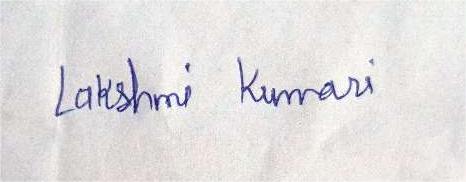 Lakshmi Kumari